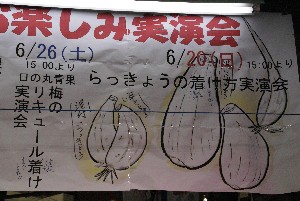 お楽しみ実演会
6/26(土)
15:00より
日の丸青果
梅の
リキュール着け
実演会
6/20(日)
15:00より
らっきょうの着け方実演会